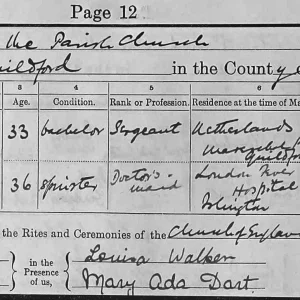 Page 12
the Parish Church
Guildford in the County of
3 4 5 6
Age. Condition. Rank or Profession. Residence at the time of Ma
33 bachelor Sergeant Netherlands
Guildford
36 Spinster Doctor's London Fever
maid Hospital
Islington
the Rites and Ceremonies of the Church of England
in the Louisa Walker
Presence
of us, Mary Ada Dart.